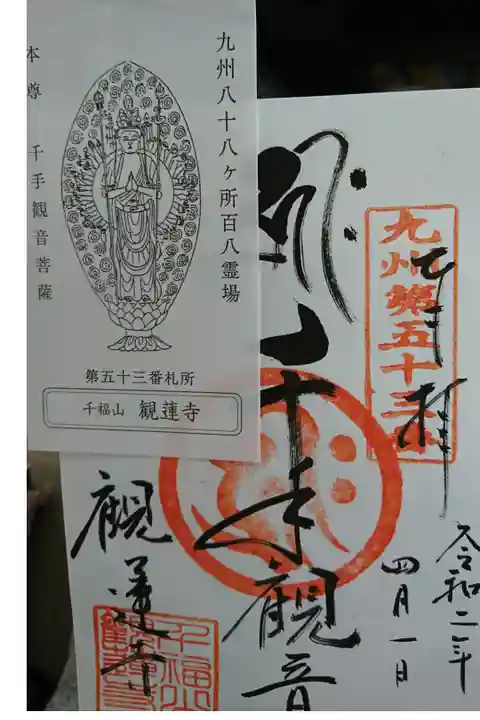 九州八十八ヶ所百八霊場
本尊 千手観音菩薩
第五十三番札所
千福山 観蓮寺
九州第五十三
奉拝
令和二年
四月一日
千手観音
観蓮寺